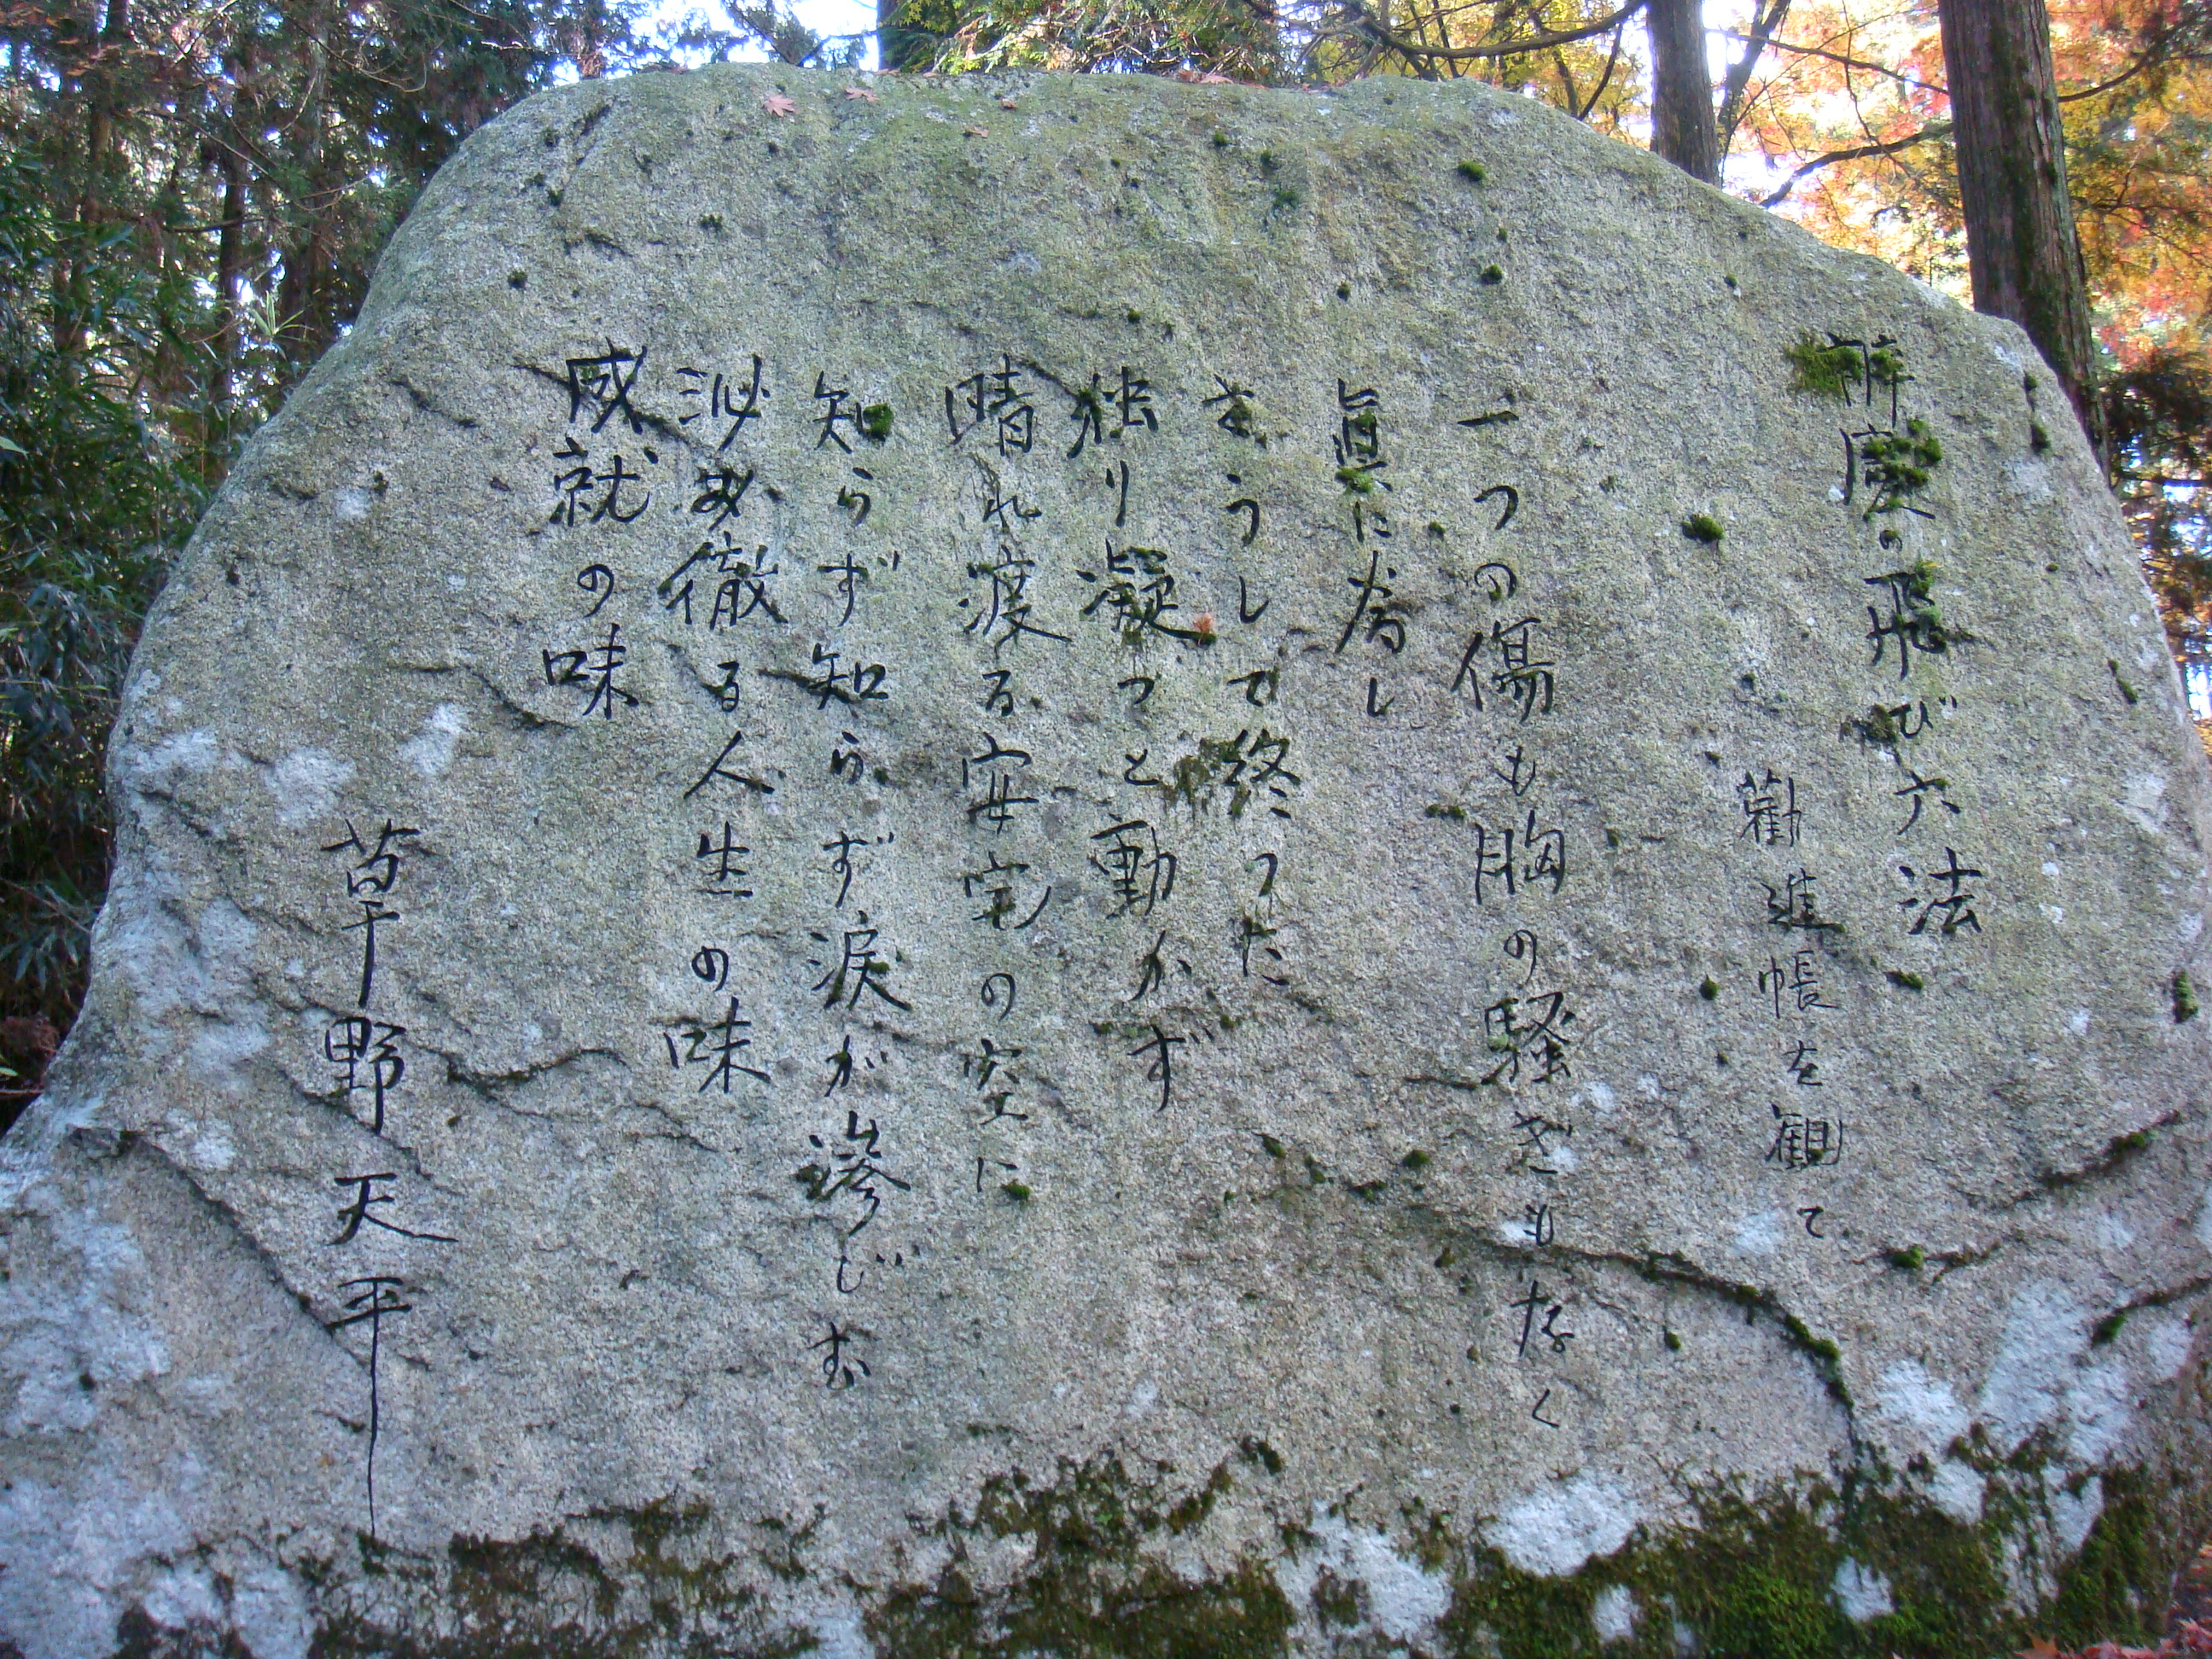 辨慶の飛び六法
勸進帳を観て
一つの傷も胸の騒ぎもなく
眞に為し
さうして終つた
独り凝つと動かず
晴れ渡る安宅の空に
知らず知らず涙が滲じむ
泌み徹る人生の味
成就の味
草野天平